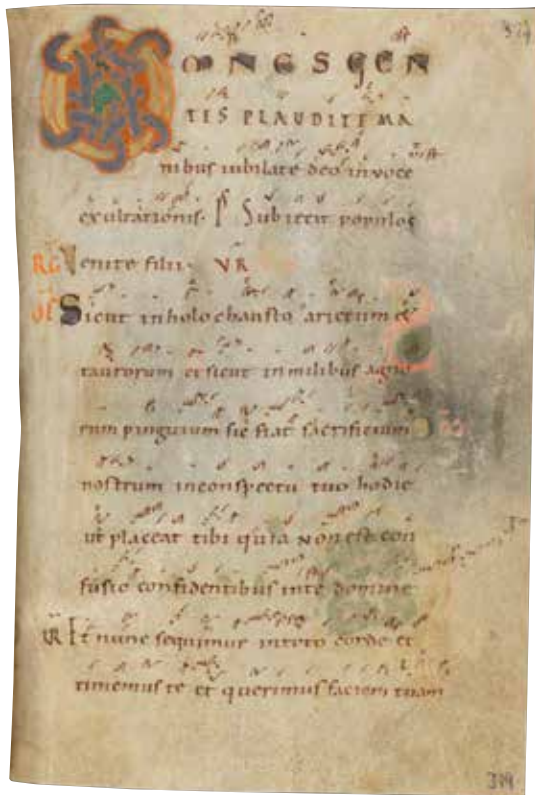 OMNES GEN
TES PLAUDITE MA
nibus iubilate deo in voce
exultationis. Ps Subiecit populos
RG Venite filii. VR
OF Sicut in holochausto arietum &
taurorum et sicut in milibus agno
rum pinguium sic fiat sacrificium
nostrum in conspectu tuo hodie
ut placeat tibi quia Non est con
fusio confidentibus in te domine
VR Et nunc sequimur in toto corde et
timemus te et querimus faciem tuam
319